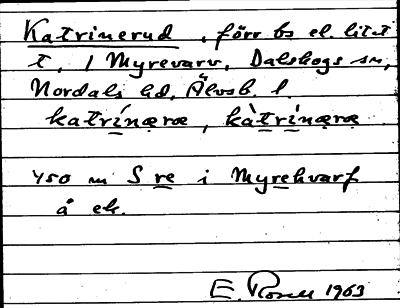 Katrinerud, förr bs el. litet
t, 1 Myrevarv, Dalskogs sn,
Nordals hd, Älvsb. l.
katrínæræ, kàtrínæræ
450 m S re i Myrehvarf
å ek.
E. Rosell 1963